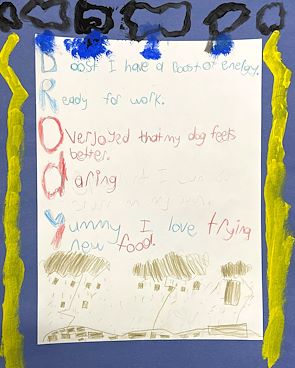 Boost I have a Boost of energy.
Ready for work.
Overjoyed that my dog feels
better.
daring it I
in my
Yummy I love trying
new food.